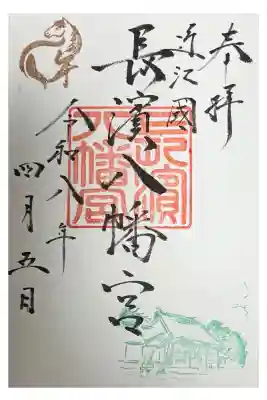 奉拝
近江國
長濱八幡宮
長濱八幡宮
令和八年
四月五日